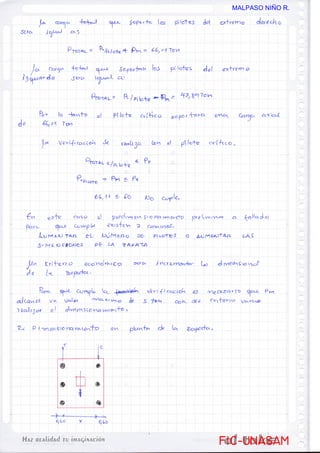 MALPASO NIÑO R.
La carga total que soporta los pilotes del extremo derecho
será igual a:
PTOTAL = P/pilote + Pm = 66,11 Ton
La carga total que soportan los pilotes del extremo
izquierdo será igual a:
PTOTAL = P/pilote - Pm = 47,89 Ton
Por lo tanto el pilote crítico soportara una carga actual
de 66,11 Ton
La verificación se realiza con el pilote crítico.
PTOTAL x/pilote ≤ Pe
66,11 ≤ 60 NO cumple.
En este caso el predimensionamiento preliminar a fallado
para que cumpla existen 2 caminos:
AUMENTAR EL NÚMERO DE PILOTES O AUMENTAR LAS
DIMENSIONES DE LA ZAPATA.
Un criterio económico será incrementar las dimensiones
de la zapata.
Para que cumpla la verificación es necesario que Pm
alcance un valor de 5 Ton. con ese criterio vamos
realizar el dimensionamiento.
2.- Dimensionamiento en planta de la zapata.
Y
0,60 X 0,60
Haz realidad tu imaginación
FIC-UNASAM